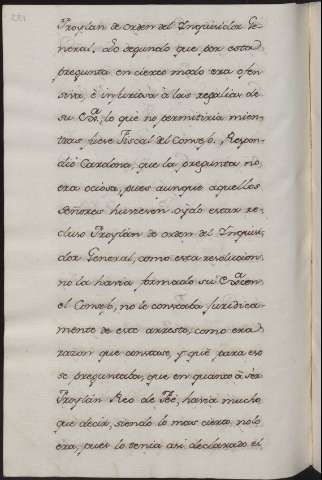 Froylán de orden del Inquisidor Ge-
neral. Lo segundo que por esta
pregunta en cierto modo era ofen
siva, è injuriosa à las regalias de
su Exª., lo que no permitiria mien-
tras fuese Fiscal del Consejo. Respon-
dió Cardona, que la pregunta no
era ociosa, pues aunque aquellos
Señores huviesen oydo estar re-
cluso Froylán de orden del Inquisi-
dor General, como esta resolucion
no la havia formado su Exª. en
el Consejo, no le constaba juridica-
mente de este arresto, como era
razon que constase, y que para eso
se preguntaba, que en quanto à ser
Froylán Reo de Feè, havia mucho
que decir, siendo lo mas cierto no lo
era, pues lo tenia asi declarado el